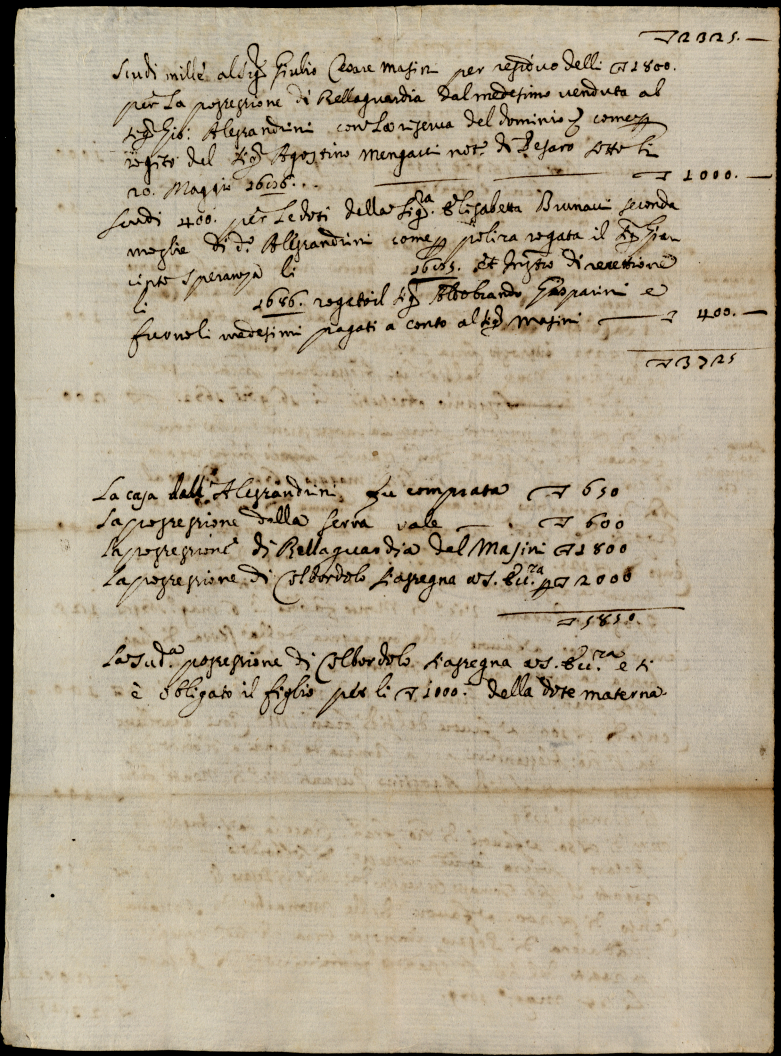 2325.
Scudi mille al Sig.r Giulio Cesare Masini per residuo delli 1800.
per La possessione di Bellaguardia dal medesimo venduta al
Sig.r Gio: Alessandrini con La riserva del dominio come p
rogito del Sig.r Agostino Mengacci not.o di Pesaro sotto li
20. Maggio 1686. 1000.
Scudi 400. per Le doti della Sig.ra Elisabetta Brunacci seconda
moglie di d.o Alessandrini come p poliza rogata il Sig.r Gia
cinto Speranza li 1685. Et Instro di recettione
li 1686. rogato il Sig.r Aldobrando Gasparini e
furno li medesimi pagati a conto al Sig.r Masini 400.
3725
La casa dall'Alessandrini fu comprata 650
La possessione della serra vale 600
La possessione di Bellaguardia del Masini 1800
La possessione di Colbordolo Rassegna a S. Ecc.za p 2000
5850.
La Sud.a possessione di Colbordolo Rassegna a S. Ecc.za e si
è obligato il figlio per li 1000. della dote materna